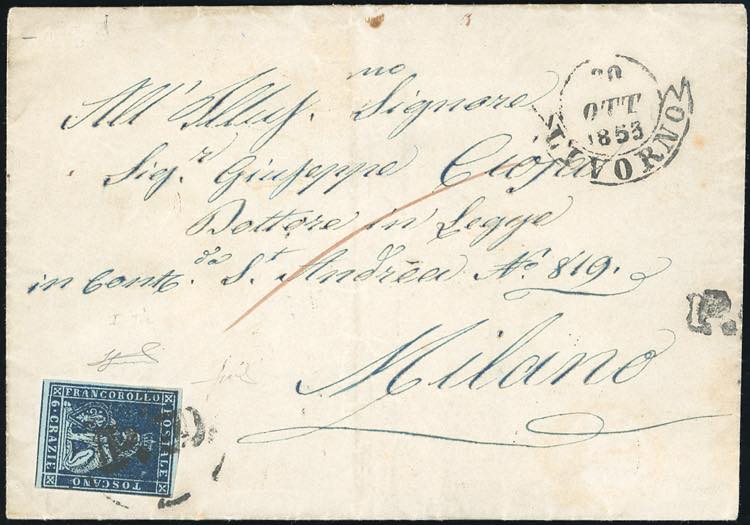 All' Illus.mo Signore
Sig.r Giuseppe
Dottore in Legge
in Cont.da S.t Andrea N.o 819.
Milano
20
OTT
1853
LIVORNO
P.
FRANCOBOLLO
POSTALE
TOSCANO
6·CRAZIE